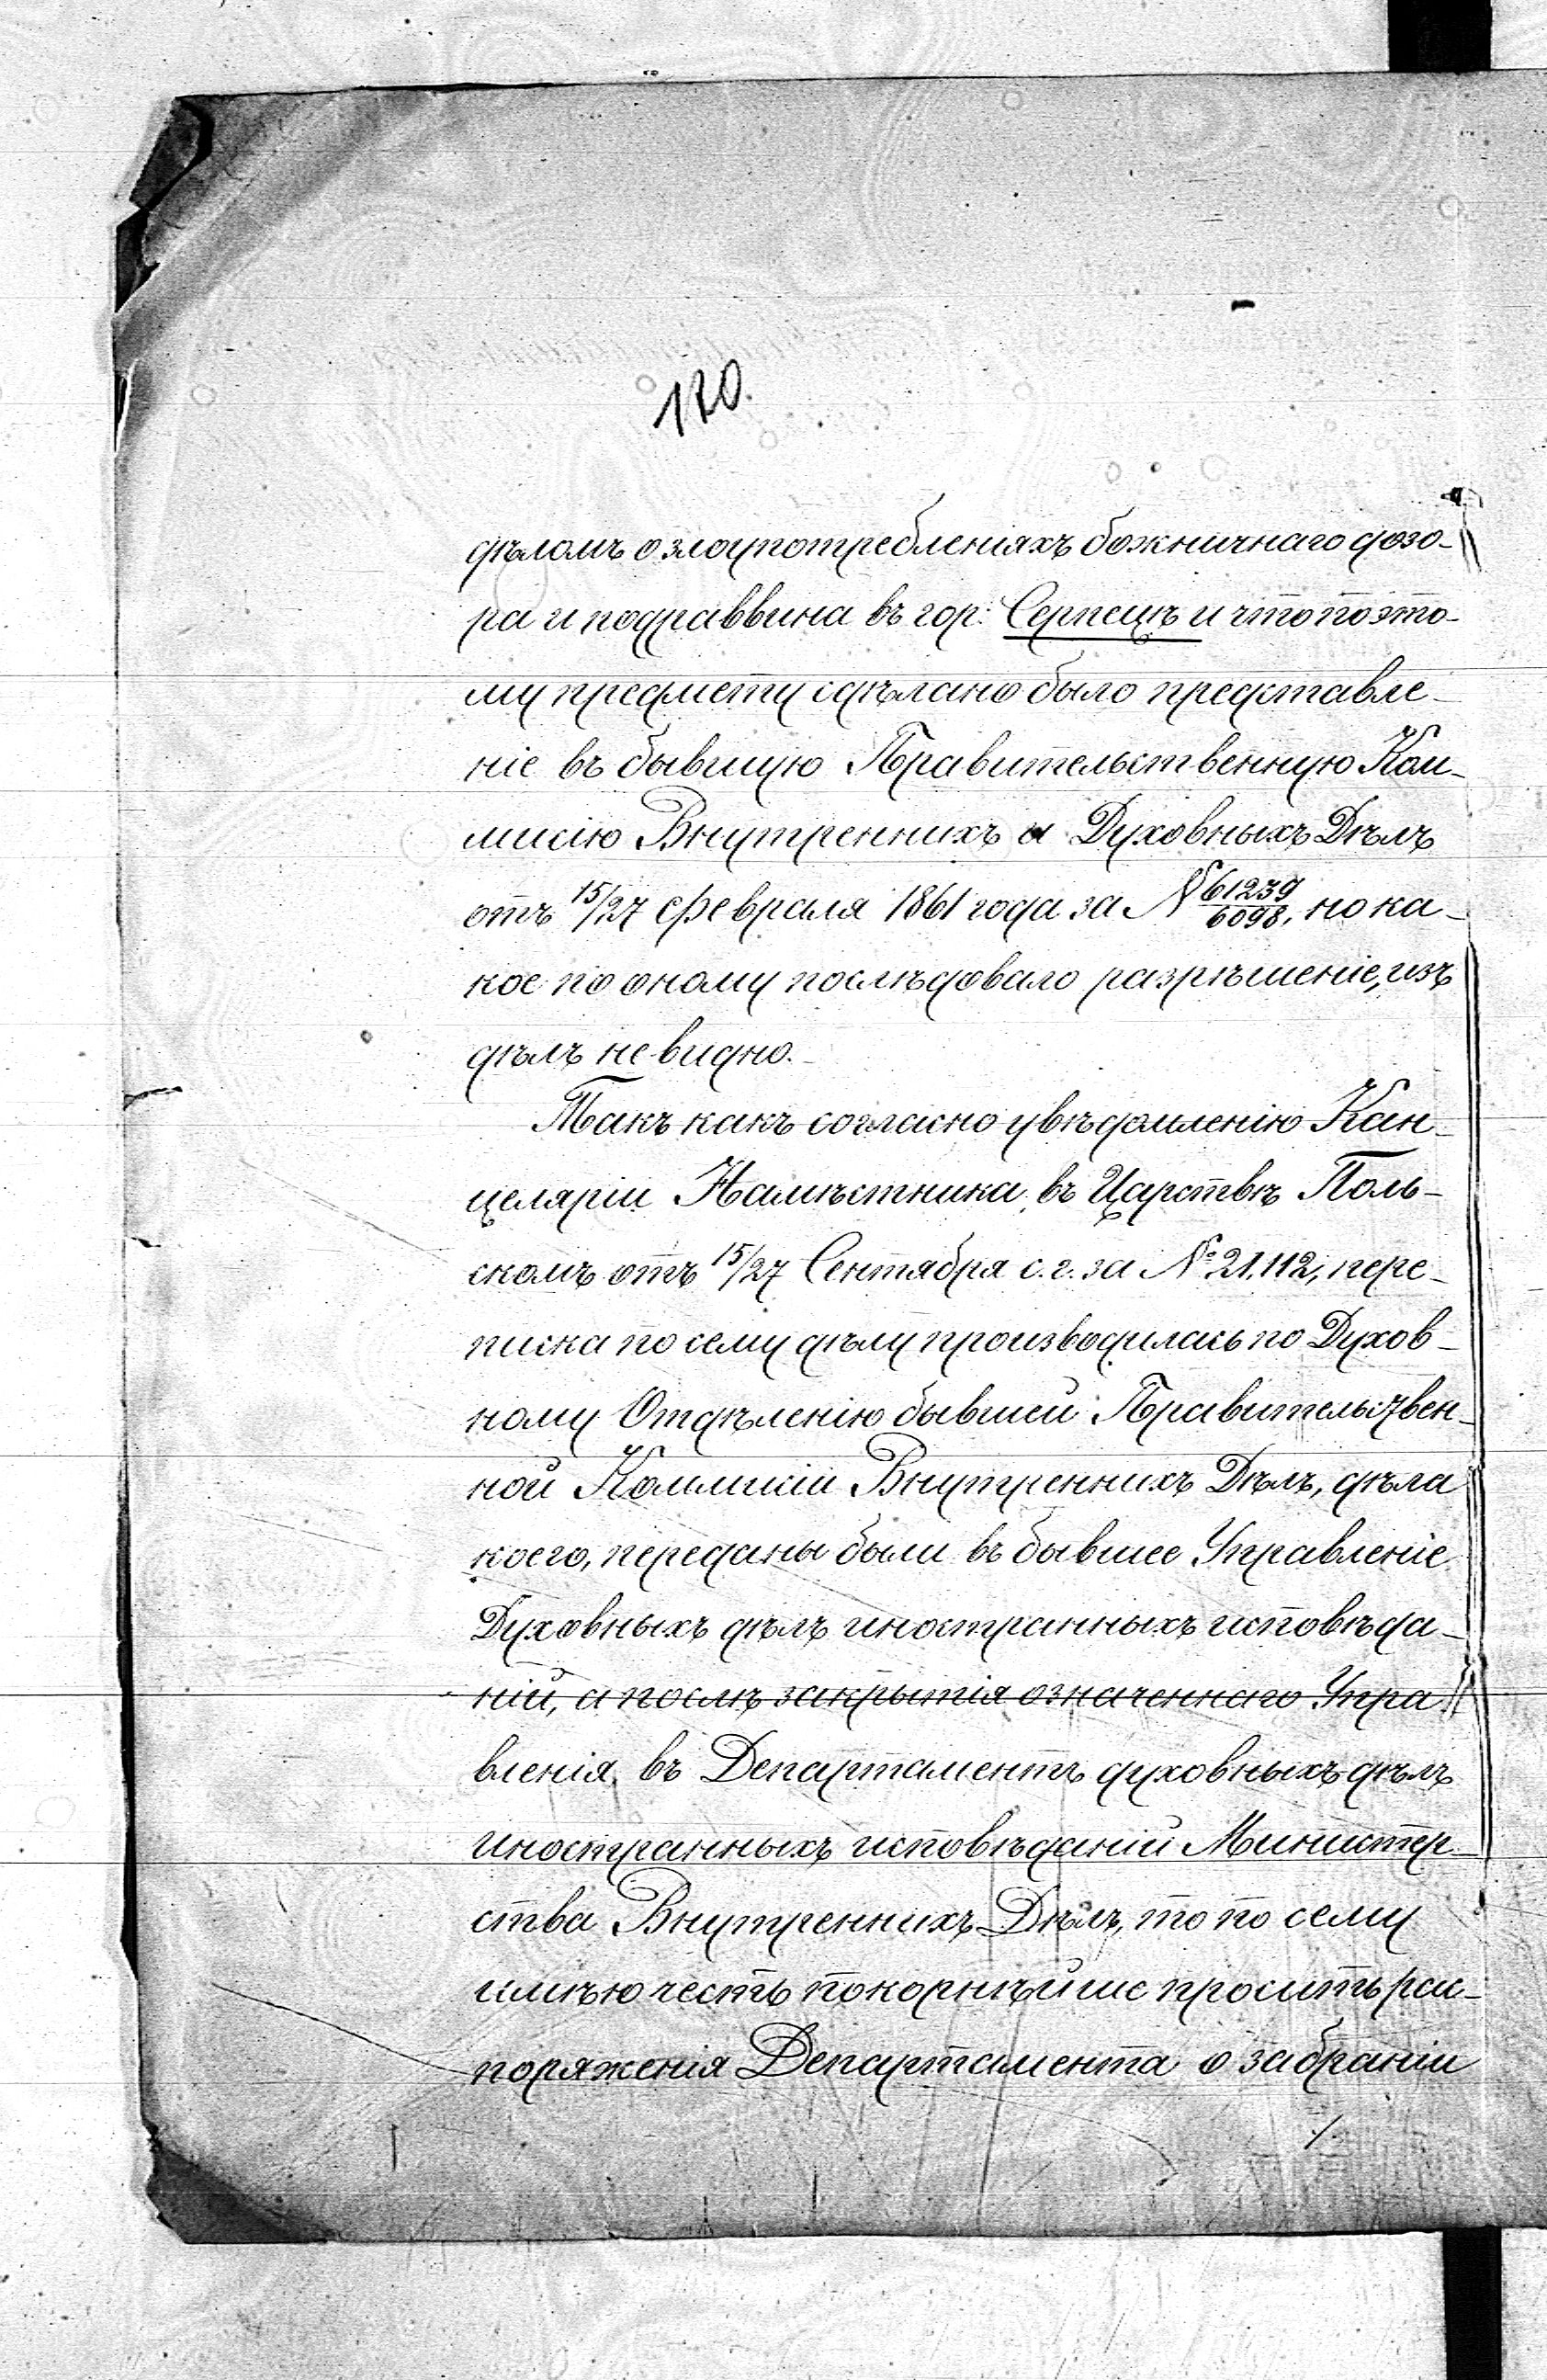 170.
дѣломъ о злоупотребленіяхъ божничнаго дозо-
ра и подраввина въ гор: Серпецѣ и что по это-
му предмету сдѣлано было представле-
ніе въ бывшую Правительственную Ком-
мисію Внутреннихъ и Духовныхъ Дѣлъ
отъ 15/27 Февраля 1861 года за № 61239/6098, но ка-
кое по оному послѣдовало разрѣшеніе, изъ
дѣлъ не видно.
Такъ какъ согласно увѣдомленію Кан-
целяріи Намѣстника въ Царствѣ Поль-
скомъ отъ 15/27 Сентября с. г. за № 21,112, пере-
писка по сему дѣлу производилась по Духов-
ному Отдѣленію бывшей Правительствен-
ной Коммисіи Внутреннихъ Дѣлъ, дѣла
коего, переданы были въ бывшее Управленіе
Духовныхъ дѣлъ иностранныхъ исповѣда-
ній, а послѣ закрытія означеннаго Упра-
вленія, въ Департаментъ духовныхъ дѣлъ
иностранныхъ исповѣданій Министер-
ства Внутреннихъ Дѣлъ, то по сему
имѣю честь покорнѣйше просить рас-
поряженія Департамента о забраніи
./.